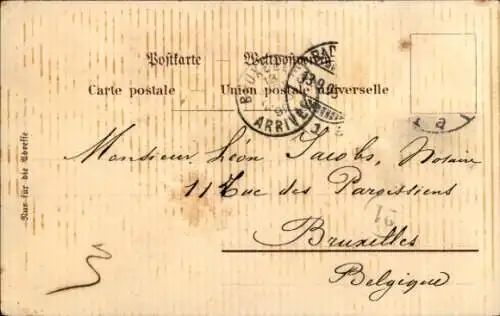 Postkarte Weltpostverein
Carte postale Union postale universelle
BRUXELLES
ARRIVÉE
13.9.
Monsieur Léon Jacobs, Notaire
11 Rue des Paroissiens
Bruxelles
Belgique
Nur für die Adresse
21